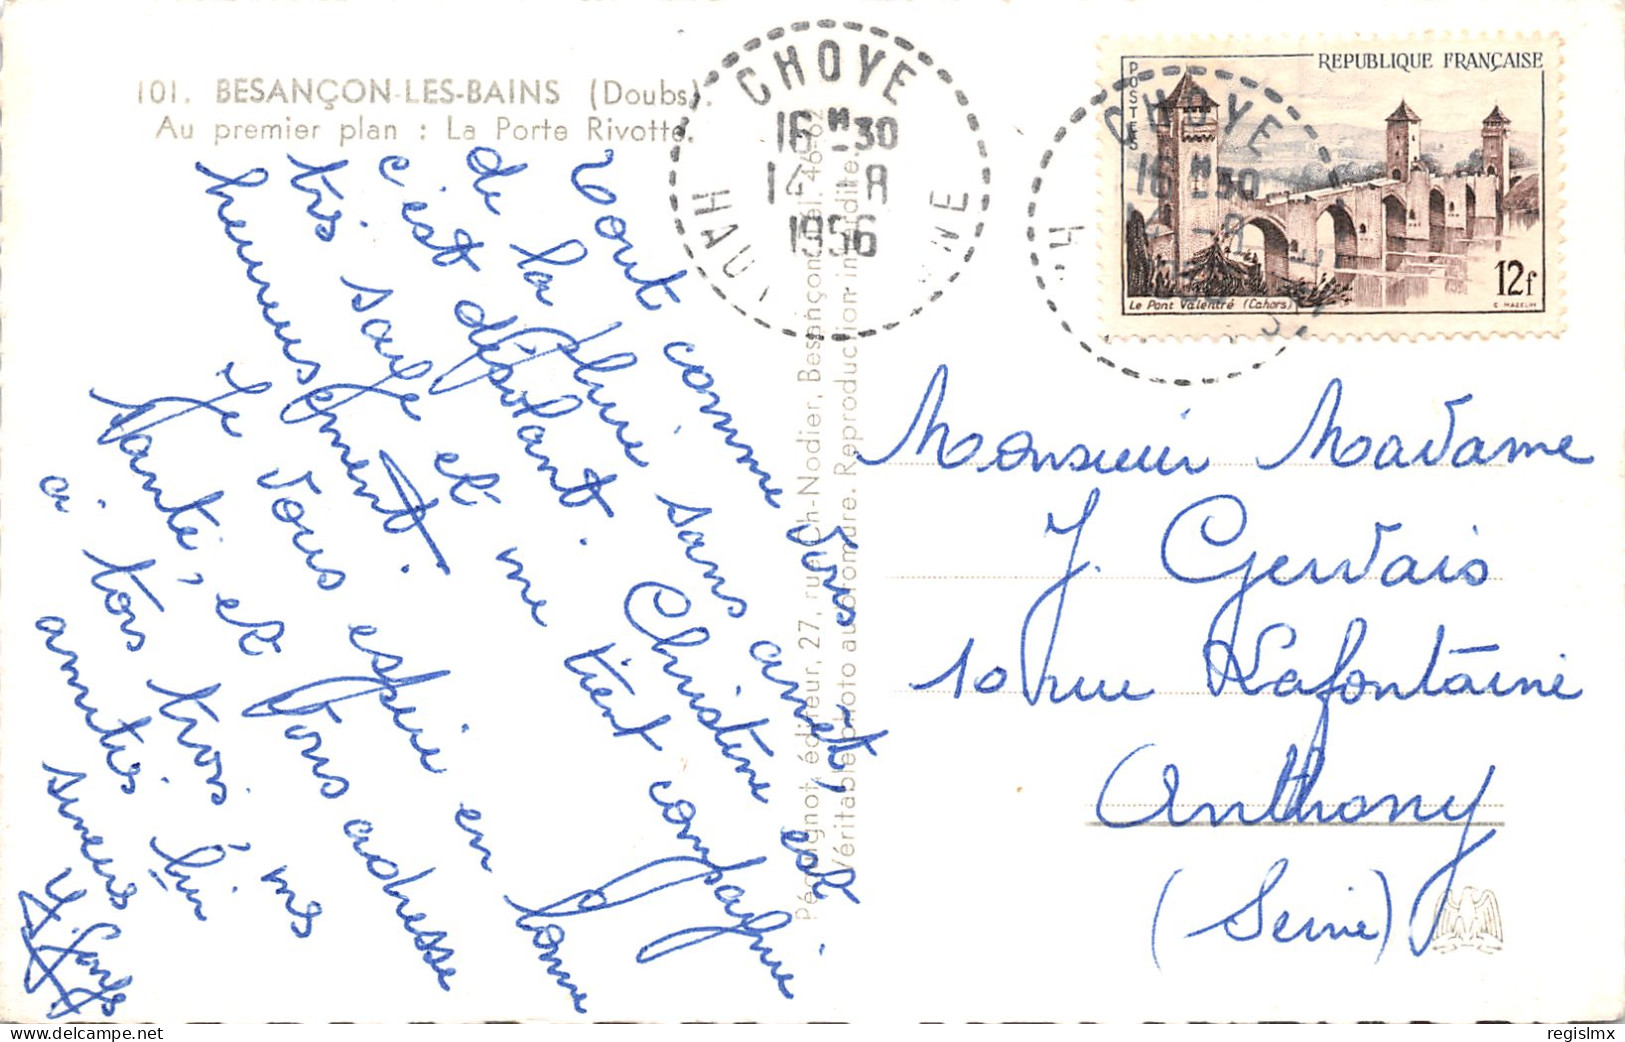 101. BESANÇON-LES-BAINS (Doubs).
Au premier plan : La Porte Rivotte.
CHOYE
16 H 30
14 -8
1956
HAUTE SAONE
REPUBLIQUE FRANÇAISE
POSTES
12f
Le Pont Valentré (Cahors)
C. MAZELIN
CHOYE
16 H 30
14 -8
Tout comme vous
de la pluie sans arrêt,
c'est désolant. Christine est
très sage et me tient compagnie
heureusement.
Je vous espère en bonne
santé, et vous adresse
à tous trois, mes
amitiés bien
sincères
Péquignot, éditeur, 27, rue Ch-Nodier, Besançon, Tél. 46-62
Véritable photo au bromure. Reproduction interdite.
Monsieur Madame
J. Gervais
10 rue Lafontaine
Anthony
(Seine)
regislmx